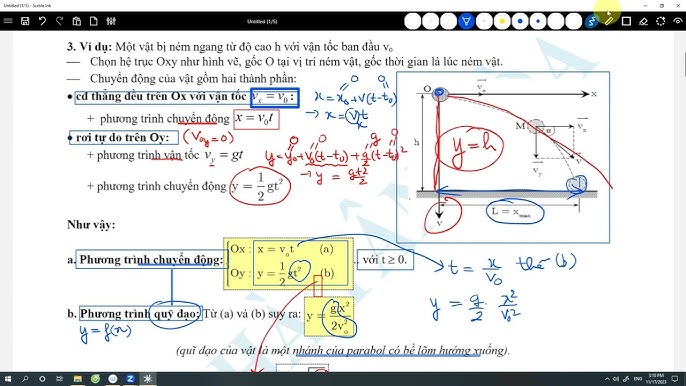 Untitled (1/5) - Scribble Ink
Untitled (1/5)
3. Ví dụ: Một vật bị ném ngang từ độ cao h với vận tốc ban đầu v₀
— Chọn hệ trục Oxy như hình vẽ, gốc O tại vị trí ném vật, gốc thời gian là lúc ném vật.
— Chuyển động của vật gồm hai thành phần:
• cđ thẳng đều trên Ox với vận tốc vₓ = v₀ :
x = x₀ + v(t - t₀)
0 0
+ phương trình chuyển động x = v₀t
→ x = v₀t
• rơi tự do trên Oy: (v₀y = 0)
y = y₀ + v₀(t - t₀) + g/2 (t - t₀)²
+ phương trình vận tốc v_y = gt
→ y = gt²/2
+ phương trình chuyển động y = 1/2 gt²
O v₀ x
M α vₓ
y = h
h
v_y v
L = x_max
Như vậy:
a. Phương trình chuyển động: Ox : x = v₀t (a)
Oy : y = 1/2 gt² (b)
, với t ≥ 0.
t = x/v₀ thế (b)
b. Phương trình quỹ đạo: Từ (a) và (b) suy ra: y = gx²/2v₀²
y = f(x)
y = g/2 · x²/v₀²
(quĩ đạo của vật là một nhánh của parabol có bề lõm hướng xuống).
ENG
3:10 PM
11/17/2023